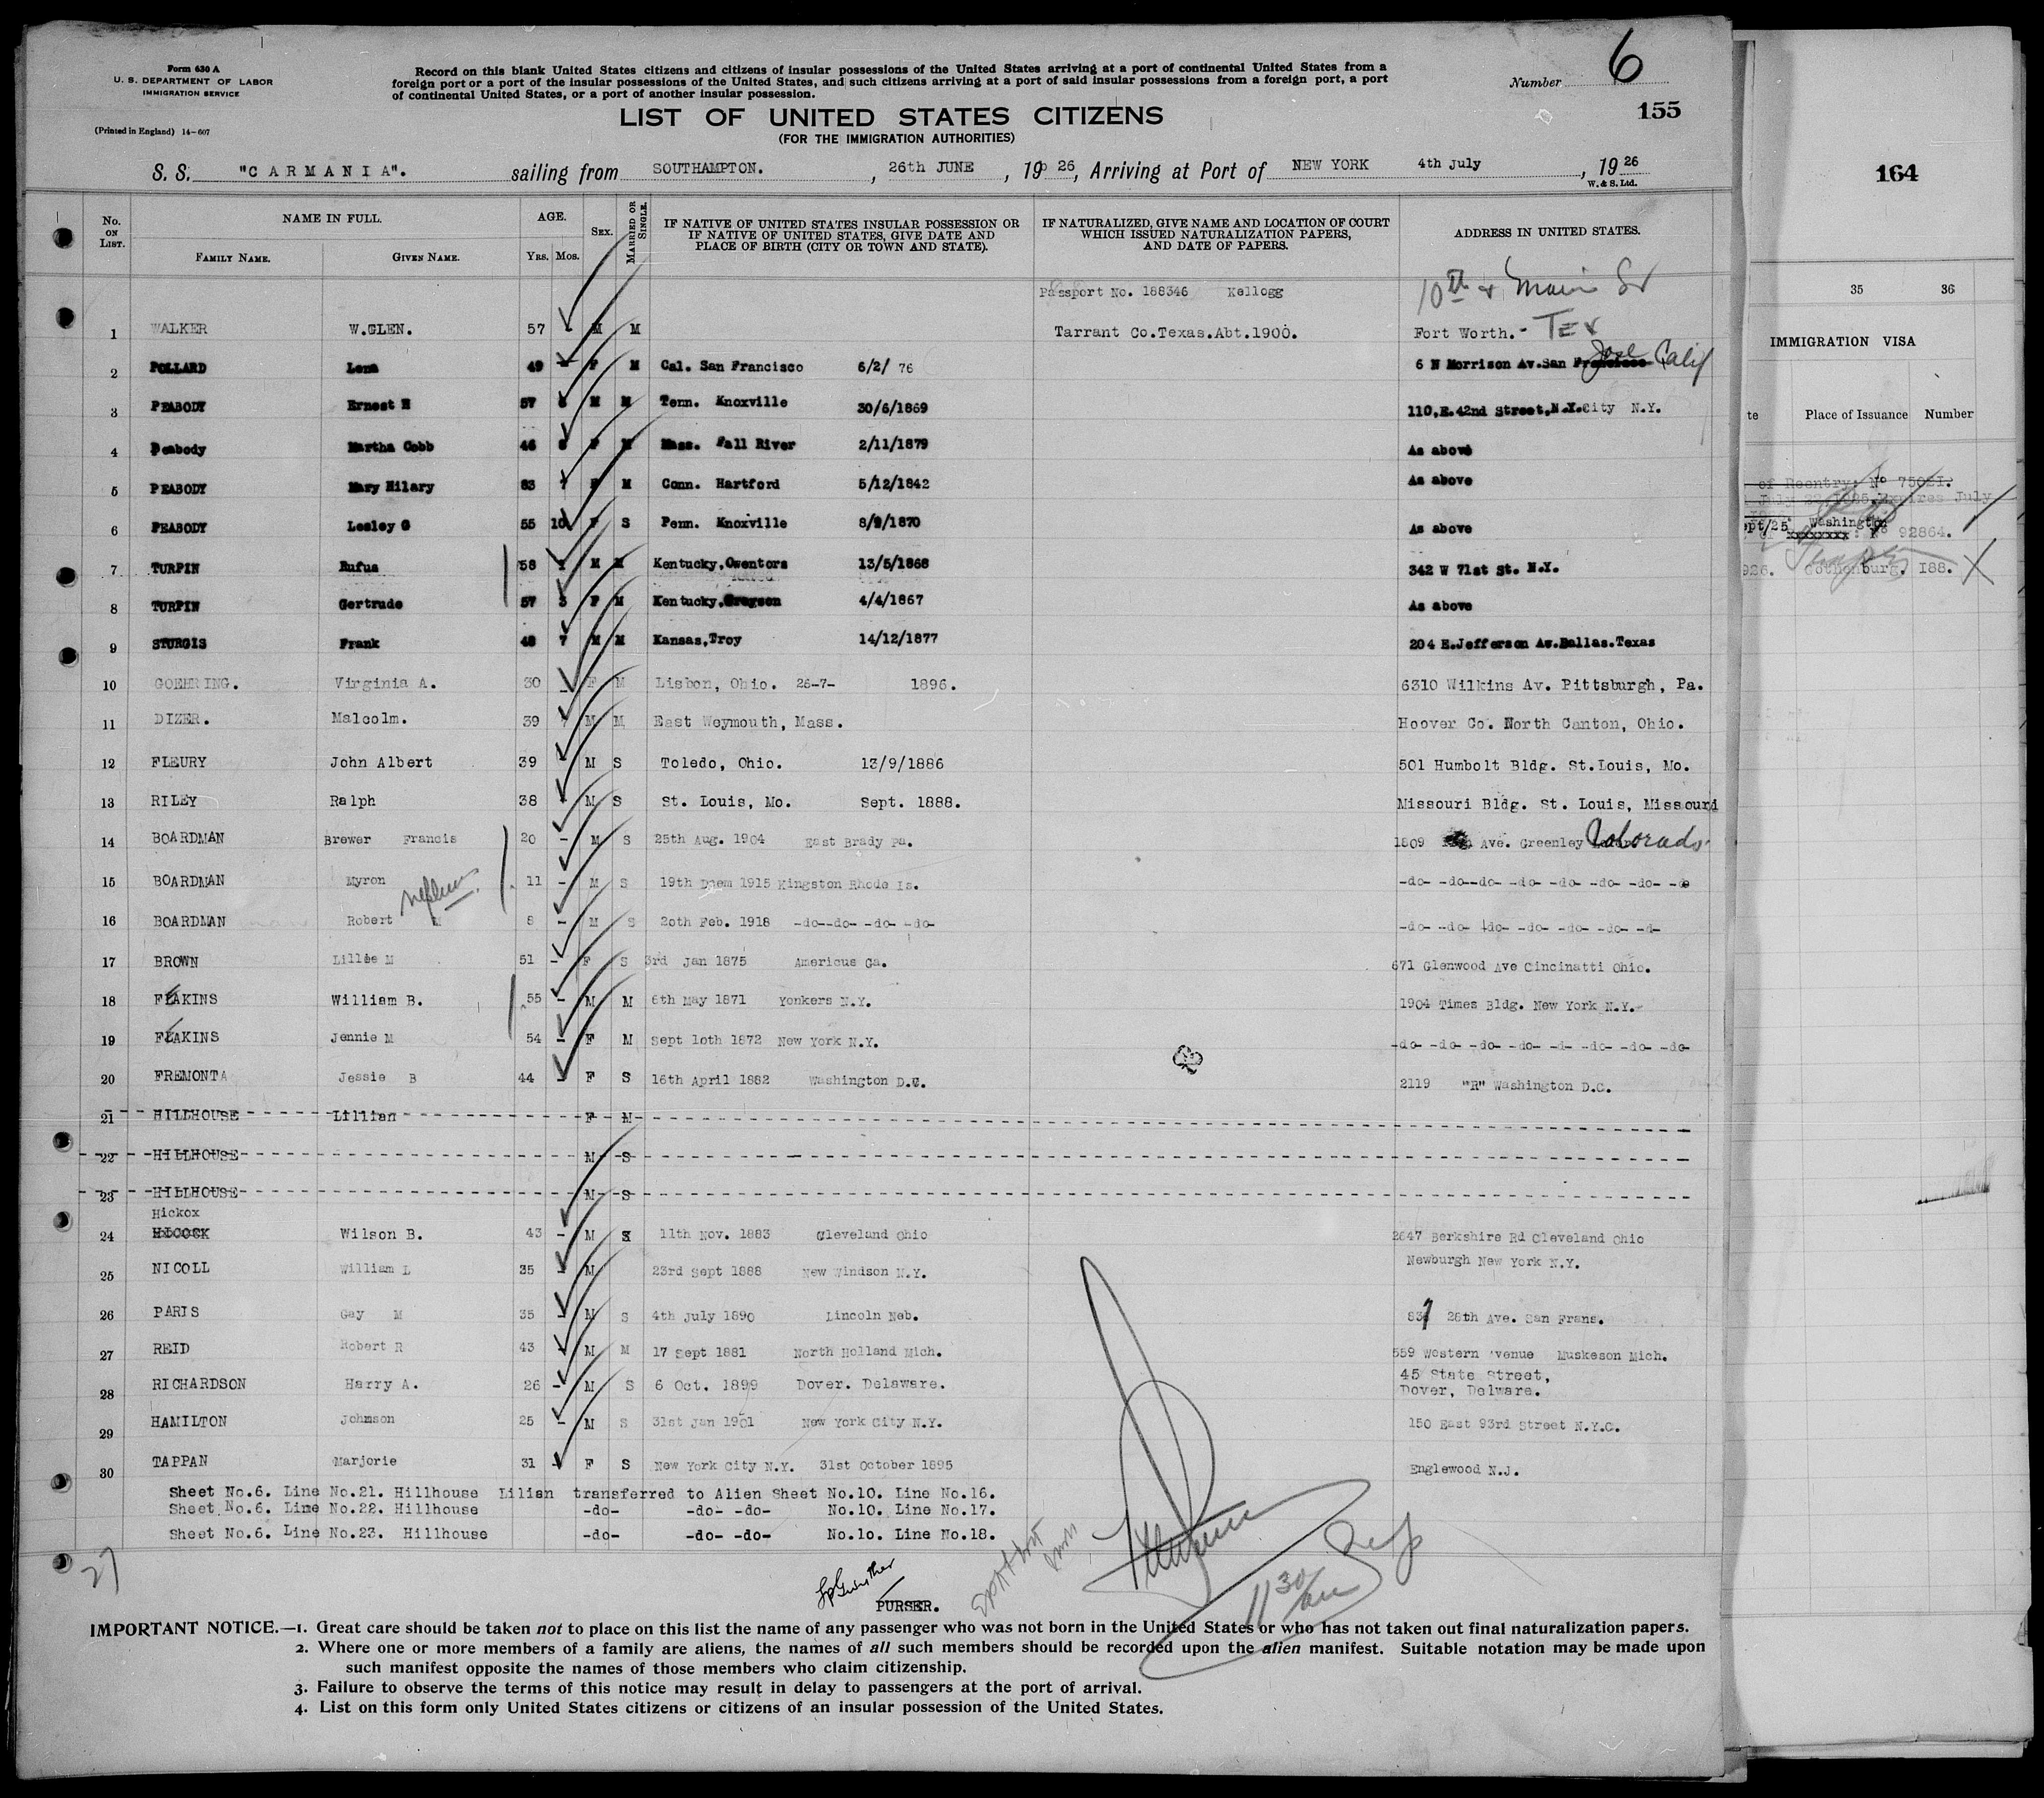 Form 630 A
U. S. DEPARTMENT OF LABOR
IMMIGRATION SERVICE
(Printed in England) 14-607
Record on this blank United States citizens and citizens of insular possessions of the United States arriving at a port of continental United States from a
foreign port or a port of the insular possessions of the United States, and such citizens arriving at a port of said insular possessions from a foreign port, a port
of continental United States, or a port of another insular possession.
Number 6
155
LIST OF UNITED STATES CITIZENS
(FOR THE IMMIGRATION AUTHORITIES)
S. S. "CARMANIA". sailing from SOUTHAMPTON. , 26th JUNE , 19 26, Arriving at Port of NEW YORK 4th July , 19 26
W. & S. Ltd.
No. ON LIST. NAME IN FULL. AGE. SEX. MARRIED OR SINGLE. IF NATIVE OF UNITED STATES INSULAR POSSESSION OR IF NATIVE OF UNITED STATES, GIVE DATE AND PLACE OF BIRTH (CITY OR TOWN AND STATE). IF NATURALIZED, GIVE NAME AND LOCATION OF COURT WHICH ISSUED NATURALIZATION PAPERS, AND DATE OF PAPERS. ADDRESS IN UNITED STATES.
FAMILY NAME. GIVEN NAME. YRS. MOS.
Passport No. 188346 Kellogg 10th & Main St
1 WALKER W.GLEN. 57 - M M Tarrant Co.Texas.Abt.1900. Fort Worth.- Tex
2 POLLARD Lena 49 - F M Cal. San Francisco 6/2/ 76 6 N Morrison Av.San Francisco Jose Calif
3 PEABODY Ernest H 57 M M Tenn. Knoxville 30/6/1869 110,E.42nd Street,N.Y.City N.Y.
4 Peabody Martha Cobb 46 8 F M Mass. Fall River 2/11/1879 As above
5 PEABODY Mary Hilary 83 7 F M Conn. Hartford 5/12/1842 As above
6 PEABODY Lesley G 55 10 F S Penn. Knoxville 8/9/1870 As above
7 TURPIN Rufus 58 M M Kentucky,Owentors 13/5/1868 342 W 71st St. N.Y.
8 TURPIN Gertrude 57 3 F M Kentucky,Grayson 4/4/1867 As above
9 STURGIS Frank 48 7 M M Kansas,Troy 14/12/1877 204 E.Jefferson Av.Dallas.Texas
10 GOEHRING. Virginia A. 30 - F M Lisbon, Ohio. 26-7- 1896. 6310 Wilkins Av. Pittsburgh, Pa.
11 DIZER. Malcolm. 39 M M East Weymouth, Mass. Hoover Co. North Canton, Ohio.
12 FLEURY John Albert 39 M S Toledo, Ohio. 13/9/1886 501 Humbolt Bldg. St.Louis, Mo.
13 RILEY Ralph 38 M S St. Louis, Mo. Sept. 1888. Missouri Bldg. St. Louis, Missouri
14 BOARDMAN Brewer Francis 20 - M S 25th Aug. 1904 East Brady Pa. 1509 Ave. Greenley Colorado
15 BOARDMAN Myron 11 - M S 19th Dcem 1915 Kingston Rhode Is. -do- -do--do- -do- -do- -do- -do- -do
nephews.
16 BOARDMAN Robert M 8 - M S 2oth Feb. 1918 -do--do- -do- -do- -do- -do- -do- -do- -do- -do- -d-
17 BROWN Lillie M 51 - F S 3rd Jan 1875 Americus Ga. 671 Glenwood Ave Cincinatti Ohio.
18 FEAKINS William B. 55 - M M 6th May 1871 Yonkers N.Y. 1904 Times Bldg. New York N.Y.
19 FEAKINS Jennie M 54 - F M Sept 10th 1872 New York N.Y. -do- -do- -do- -do- -d- -do- -do- -do-
20 FREMONT Jessie B 44 - F S 16th April 1882 Washington D.C. 2119 "R" Washington D.C.
21 HILLHOUSE Lillian F M
22 HILLHOUSE M S
23 HILLHOUSE M S
Hickox
24 HICOCK Wilson B. 43 - M S 11th Nov. 1883 Cleveland Ohio 2647 Berkshire Rd Cleveland Ohio
25 NICOLL William L 35 - M 23rd Sept 1888 New Windson N.Y. Newburgh New York N.Y.
26 PARIS Gay M 35 - M S 4th July 1890 Lincoln Neb. 837 26th Ave. San Frans.
27 REID Robert R 43 - M M 17 Sept 1881 North Holland Mich. 559 Western Avenue Muskeson Mich.
28 RICHARDSON Harry A. 26 - M S 6 Oct. 1899 Dover. Delaware. 45 State Street,
Dover, Delware.
29 HAMILTON Johnson 25 - M S 31st Jan 1901 New York City N.Y. 150 East 93rd Street N.Y.C.
30 TAPPAN Marjorie 31 - F S New York City N.Y. 31st October 1895 Englewood N.J.
Sheet No.6. Line No.21. Hillhouse Lilian transferred to Alien Sheet No.10. Line No.16.
Sheet No.6. Line No.22. Hillhouse -do- -do- -do- No.10. Line No.17.
Sheet No.6. Line No.23. Hillhouse -do- -do- -do- No.1o. Line No.18.
27
PURSER.
11 30/am
IMPORTANT NOTICE.—1. Great care should be taken not to place on this list the name of any passenger who was not born in the United States or who has not taken out final naturalization papers.
2. Where one or more members of a family are aliens, the names of all such members should be recorded upon the alien manifest. Suitable notation may be made upon
such manifest opposite the names of those members who claim citizenship.
3. Failure to observe the terms of this notice may result in delay to passengers at the port of arrival.
4. List on this form only United States citizens or citizens of an insular possession of the United States.
164
35 36
IMMIGRATION VISA
te Place of Issuance Number
of Reentry: No 75021.
July 22 1925 Expires July
ept/25 Washington
xxxxxxxx : No 92864.
926. Gothenburg. 188.